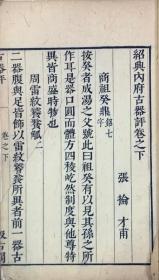 紹興內府古器評卷之下
張掄才甫
商祖癸鼎 銘七字
按癸者成湯之父號此曰祖癸有以見其孫之所
作耳是器口圓而體方四稜屹然制度與他尊特
異皆商盛時物也
周雷紋饕餮甗二
二器腹與足皆飾以雷紋饕餮所異者前一器古
古器評 卷之下 汲古閣